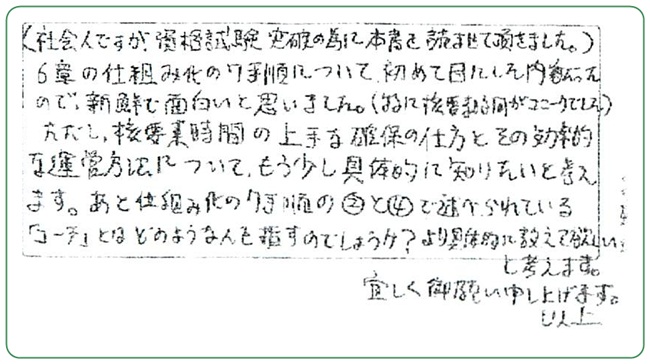 (社会人ですが、資格試験突破の為に本書を読ませて頂きました。)
6章の仕組み化の7手順について、初めて目にした内容だった
ので、新鮮で面白いと思いました。(特に核要素時間がユニークでした)
ただし、核要素時間の上手な確保の仕方とその効率的
な運営方法について、もう少し具体的に知りたいと考え
ます。あと仕組み化の7手順の③と④で述べられている
「コーチ」とはどのような人を指すのでしょうか?より具体的に教えて欲しい
と考えます。
宜しく御願い申し上げます。
以上